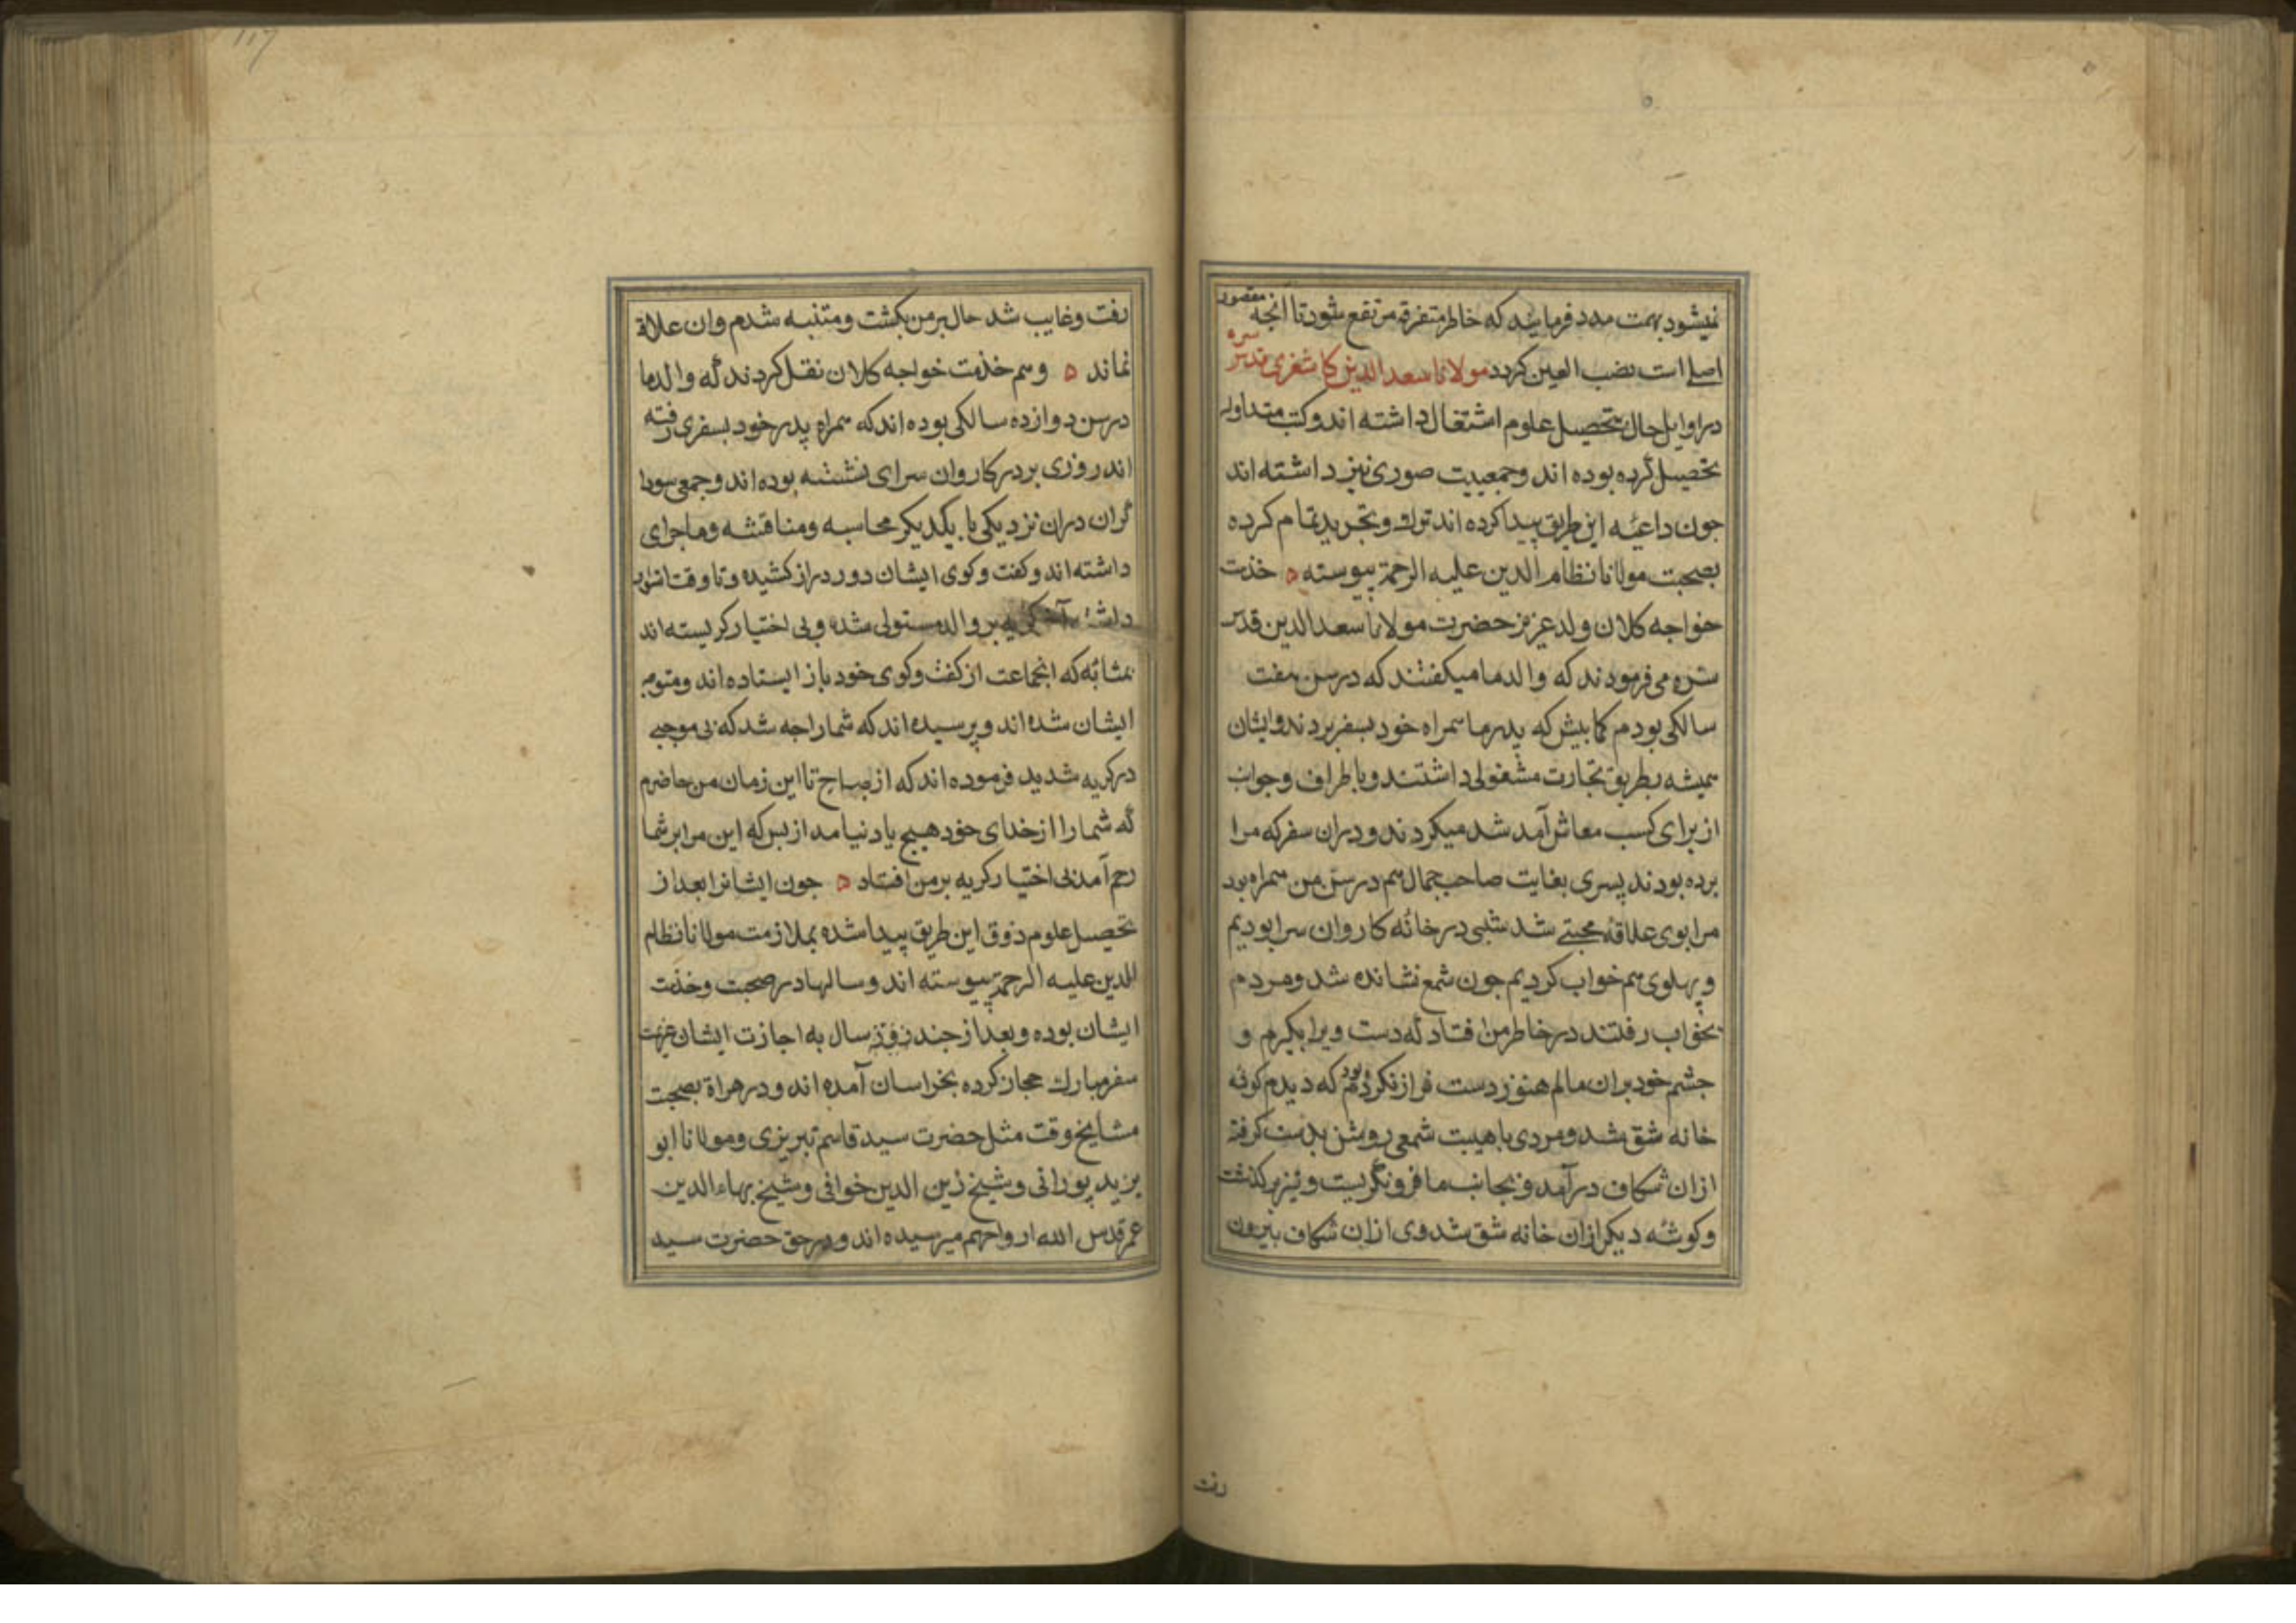 نمیشود بهمت مدد فرمایند که خاطر متفرقه مرتفع شود تا انجه مقصود
اصلی است نصب العین کردد مولانا سعد الدین کاشغری قدس سره
در اوایل حال بتحصیل علوم اشتغال داشته اند و کتب متداوله
تحصیل کرده بوده اند و جمعیت صوری نیز داشته اند
جون داعیهٔ این طریق پیدا کرده اند ترک و تجرید تمام کرده
بصحبت مولانا نظام الدین علیه الرحمة پیوسته ه خدمت
خواجه کلان ولد عزیز حضرت مولانا سعد الدین قدس
سره می فرمودند که والد ما میکفتند که در سن هفت
سالکی بودم کمابیش که پدر ما همراه خود بسفر بردند و ایشان
همیشه بطریق تجارت مشغولی داشتند و باطراف و جوانب
از برای کسب معاش آمد شد میکردند و دران سفر که مرا
برده بودند پسری بغایت صاحب جمال هم در سن من همراه بود
مرا بوی علاقهٔ محبتی شد شبی در خانهٔ کاروان سرا بودیم
و پهلوی هم خواب کردیم جون شمع نشانده شد و مردم
بخواب رفتند در خاطر من افتاد که دست ویرا بکیرم و
جشم خود بران مالم هنوز دست فراز نکرده بودم که دیدم کوشهٔ
خانه شق شد و مردی باهیبت شمعی روشن بدست کرفته
ازان شکاف درآمد و بجانب ما فرو نگریست و تیز برکذشت
و کوشهٔ دیکر ازان خانه شق شد وی ازان شکاف بیرون
رفت
رفت و غایب شد حال بر من بکشت و متنبه شدم وان علاقه
نماند ه و هم خدمت خواجه کلان نقل کردند که والد ما
در سن دوازده سالکی بوده اند که همراه پدر خود بسفری رفته
اند روزی بر در کاروان سرای نشسته بوده اند و جمعی سودا
کران دران نزدیکی با یکدیکر محاسبه و مناقشه و ماجرای
داشته اند و کفت و کوی ایشان دور دراز کشیده و تا وقت
داشته آخر کریه بر والد مستولی شده و بی اختیار کریسته اند
بمثابهٔ که انجماعت از کفت و کوی خود باز ایستاده اند و متوجه
ایشان شده اند و پرسیده اند که شما را جه شد که بی موجبی
در کریه شدید فرموده اند که از صباح تا این زمان من حاضرم
که شما را از خدای خود هیچ یاد نیامد از بس که این مرا بر شما
رحم آمد بی اختیار کریه بر من افتاد ه جون ایشانرا بعد از
تحصیل علوم ذوق این طریق پیدا شده بملازمت مولانا نظام
الدین علیه الرحمة پیوسته اند و سالها در صحبت و خدمت
ایشان بوده و بعد از جند سال به اجازت ایشان عزیمت
سفر مبارک حجاز کرده بخراسان آمده اند و در هراة بصحبت
مشایخ وقت مثل حضرت سید قاسم تبریزی و مولانا ابو
یزید پورانی و شیخ زین الدین خوافی و شیخ بهاء الدین
عمر قدس الله ارواحهم میرسیده اند و در حق حضرت سید
117